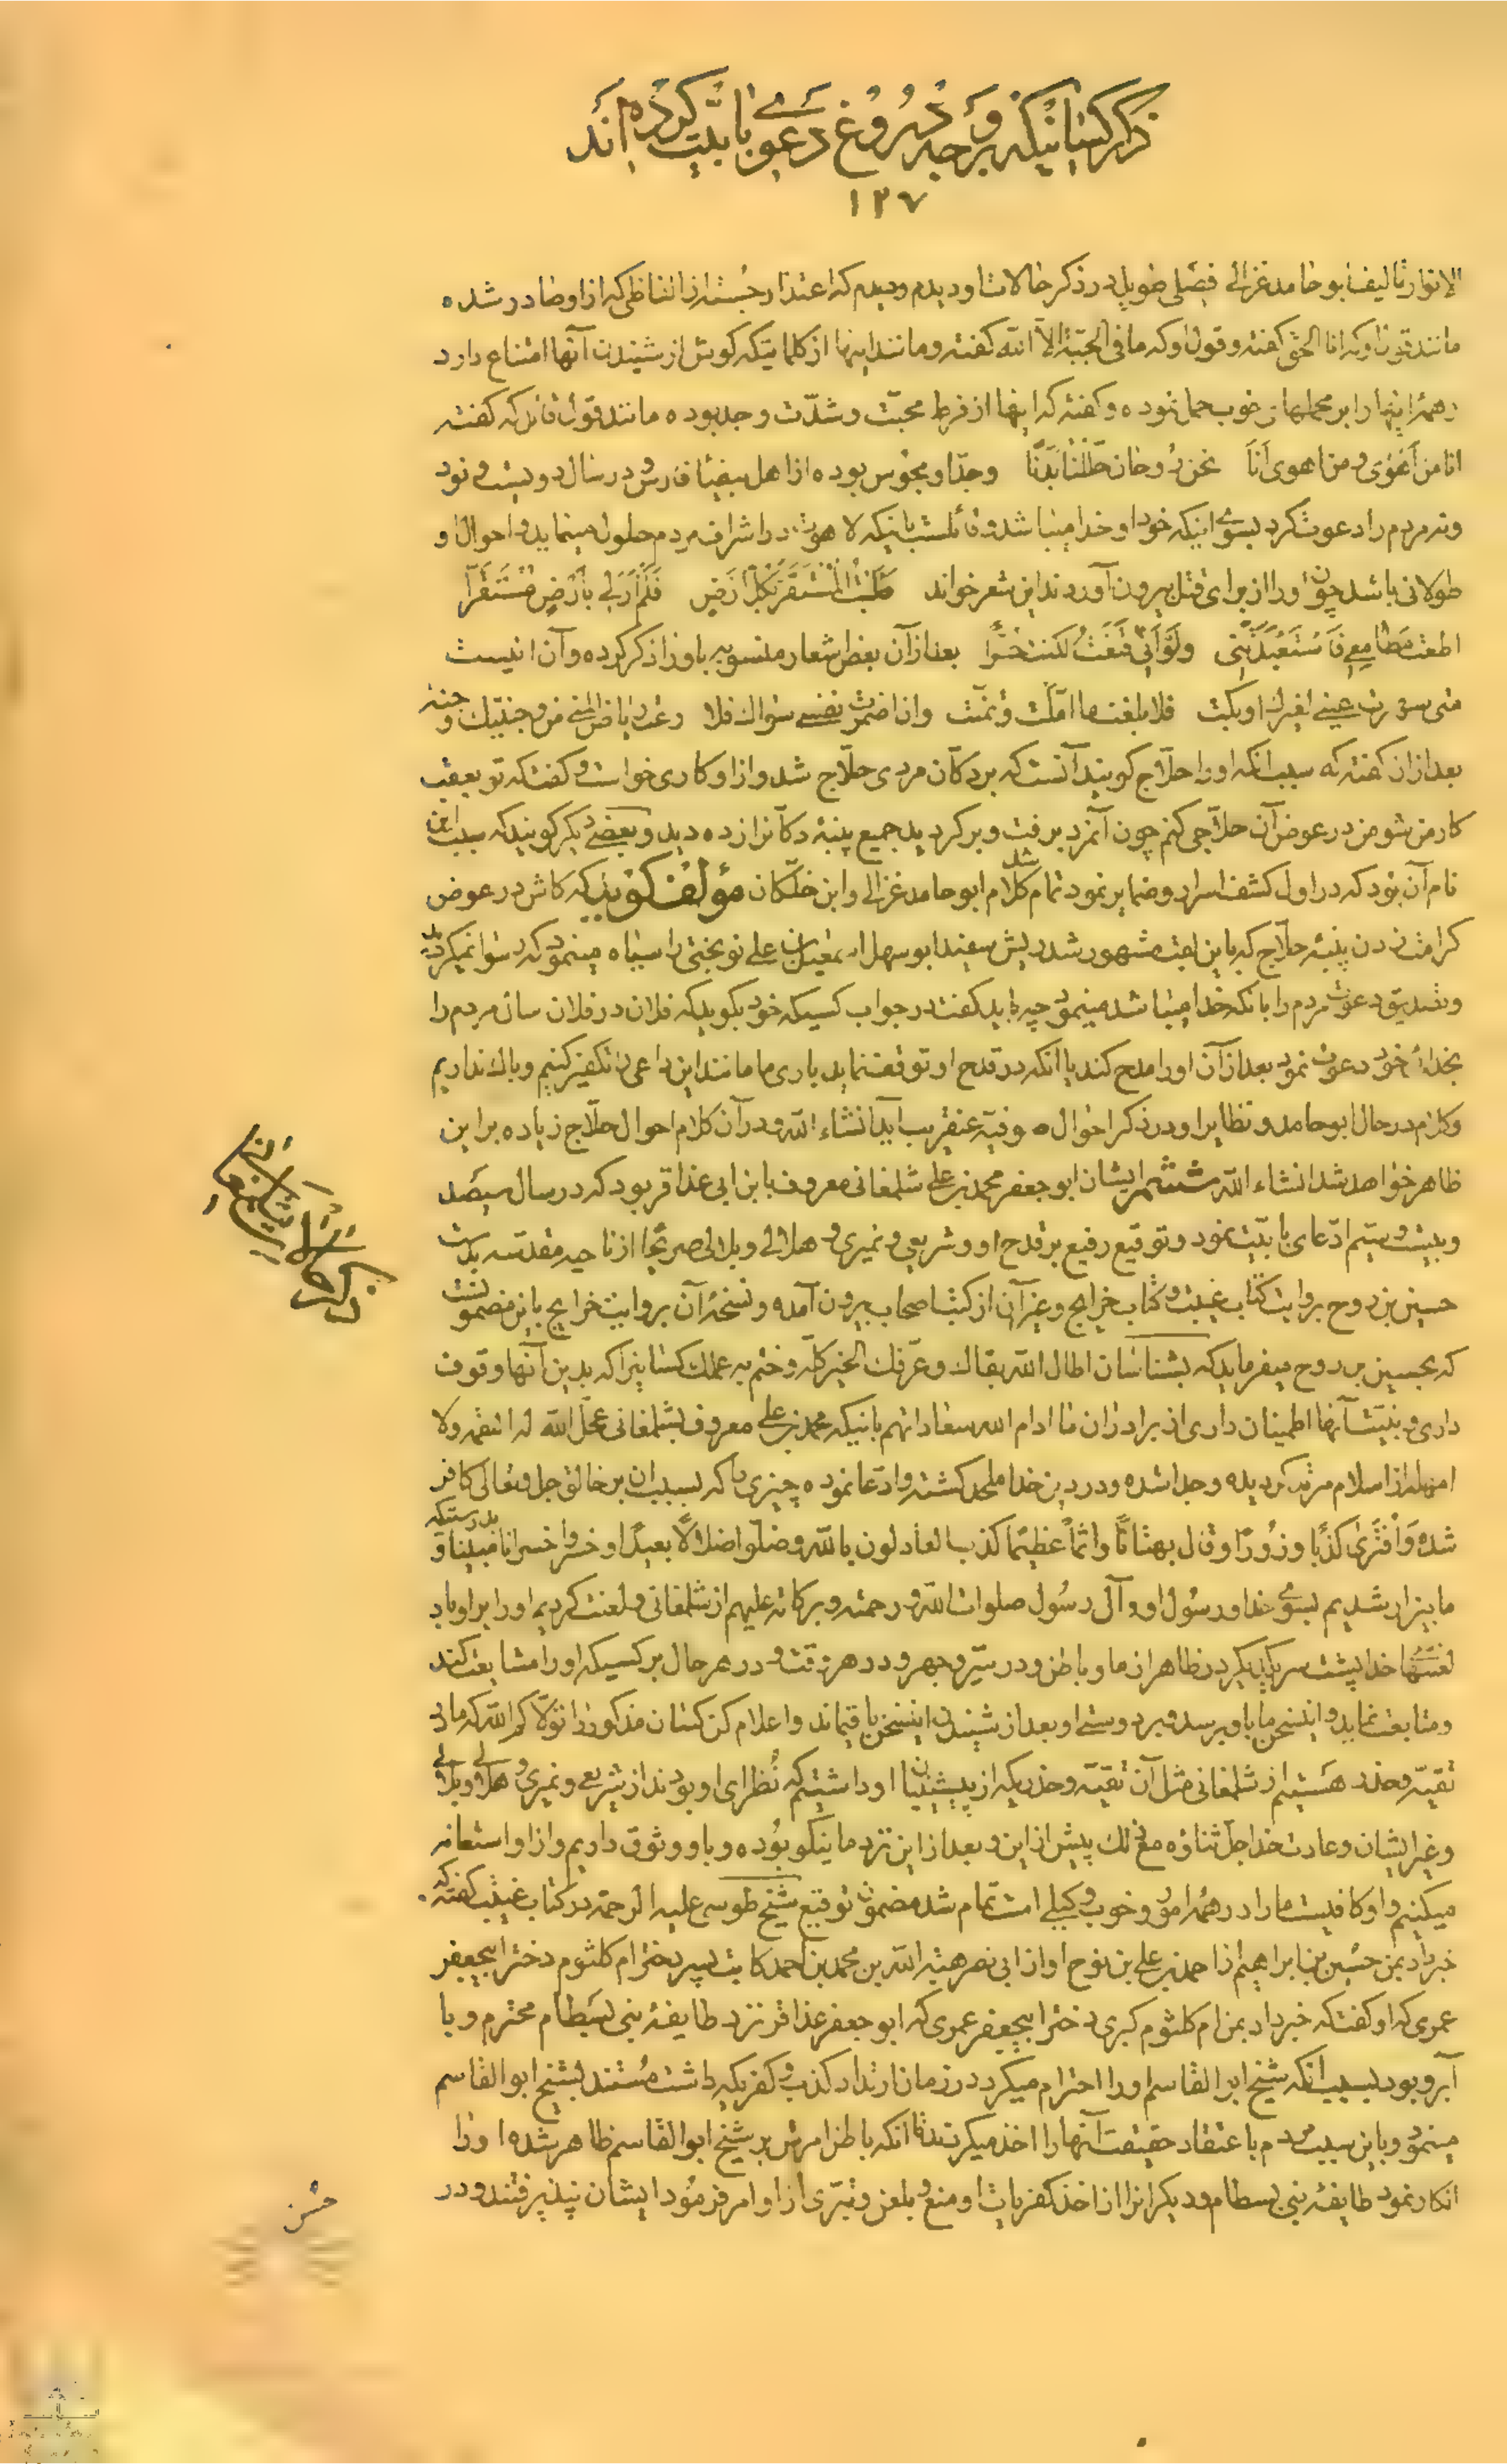 ذکر کسانیکه بر وجه دروغ دعوی بابیت کرده اند
۱۲۷
الانوار تالیف ابو حامد غزالی فصلی طویل در ذکر حالات او دیدم و دیدم که اعتذار جسته از الفاظی که از او صادر شده
مانند قول او که انا الحق گفته و قول او که ما فی الجبّة الّا الله گفته و مانند اینها از کلماتیکه گوش از شنیدن آنها امتناع دارد
و همهٔ اینها را بر محملهای خوب حمل نموده و گفته که اینها از فرط محبّت و شدّت وجد بوده مانند قول قائل که گفته
انا من اهوی و من اهوی انا نحن روحان حللنا بدنا و جدّ او مجوس بوده از اهل بیضاء فارس و در سال دویست و نود
و نه مردم را دعوت کرد بسوی اینکه خود او خدا میباشد و قائلست باینکه لاهوت در اشراف مردم حلول مینماید و احوال او
طولانی باشد چون او را از برای قتل بیرون آوردند این شعر خواند طلبت المستقرّ بکلّ ارض فلم ار لی بارض مستقرّا
اطعت مطامعی فاستعبدتنی ولو انّی قنعت لکنت حرّا بعد از آن بعض اشعار منسوبه باو را ذکر کرده و آن اینست
متی سهرت عینی لغیرک او بکت فلا بلغت ما امّلت و تمنّت و ان اضمرت نفسی سواک فلا رعت ریاض المنی من وجنتیک و جنّة
بعد از آن گفته که سبب آنکه او را حلّاج گویند آنست که بر دکان مردی حلّاج شد و از او کاری خواست و گفت که تو بعقب
کار من شو من در عوض آن حلّاجی کنم چون آنمرد برفت و برگردید جمیع پنبهٔ دکانرا زده دید و بعضی دیگر گویند که سبب این
نام آن بود که در اول کشف اسرار و ضمایر نمود تمام شد کلام ابو حامد غزالی و ابن خلّکان مؤلف گوید که کاش در عوض
کرامت زدن پنبهٔ حلّاج که باین جهت مشهور شد ریش سفید ابو سهل اسمعیل بن علی نوبختی را سیاه مینمود که رسوا نمیگردید
و تصدیق دعوت مردم را بآنکه خدا میباشد مینمود چه باید گفت در جواب کسیکه خود بگوید که فلان در فلان سال مردم را
بخدائی خود دعوت نمود بعد از آن او را مدح کند یا آنکه در قدح او توقف نماید باری ما مانند این داعی را تکفیر کنیم و باک نداریم
و کلام در حال ابو حامد و نظایر او در ذکر احوال صوفیّه عنقریب آید انشاء الله و در آن کلام احوال حلّاج زیاده بر این
ظاهر خواهد شد انشاء الله ششم ایشان ابو جعفر محمد بن علی شلمغانی معروف بابن ابی عذاقر بود که در سال سیصد
و بیست و سیّم ادّعای بابیّت نمود و توقیع رفیع بر قدح او و شریعی و نمیری و هلالی و بلالی صریحا از ناحیه مقدّسه بدست
حسین بن روح بروایت کتاب غیبت و کتاب خرایج و غیر آن از کتب اصحاب بیرون آمده و نسخهٔ آن بروایت خرایج باین مضمونست
که بحسین بن روح میفرماید که بشناسان اطال الله بقاک و عرّفک الخیر کلّه و ختم به عملک کسانیرا که بدین آنها وقوف
داری و بنیّت آنها اطمینان داری از برادران ما ادام الله سعادتهم باینکه محمد بن علی معروف بشلمغانی عجّل الله له النقمه ولا
امهله از اسلام مرتد گردیده و جدا شده و در دین خدا ملحد گشته و ادّعا نموده چیزی را که بسبب آن بر خالق جل و تعالی کافر
شده و افتری کذبا و زورا و قال بهتانا و اثما عظیما کذب العادلون بالله و ضلّوا ضلالا بعیدا و خسروا خسرانا مبینا و بدرستیکه
ما بیزار شدیم بسوی خدا و رسول او و آل رسول صلوات الله و رحمته و برکاته علیهم از شلمغانی و لعنت کردیم او را بر او باد
لعنتهای خدا پشت سر یکدیگر در ظاهر از ما و باطن و در سرّ و جهر و در هر وقت و در هر حال بر کسیکه او را مشایعت کند
و متابعت نماید و اینسخن ما باو برسد و بر دوستی او بعد از شنیدن اینسخن باقیماند و اعلام کن کسان مذکور را تولّاکم الله که ما در
تقیّه و حذر هستیم از شلمغانی مثل آن تقیّه و حذریکه از پیشینیان او داشتیم که نظرای او بودند از شریعی و نمیری و هلالی و بلالی
و غیر ایشان و عادت خدا جلّ ثناؤه مع ذلک پیش از این و بعد از این نزد ما نیکو بوده و باو وثوق داریم و از او استعانه
میکنیم و او کافیست ما را در همهٔ امور و خوب وکیلی است تمام شد مضمون توقیع شیخ طوسی علیه الرحمة در کتاب غیبت گفته که
خبر داد بمن حسین بن ابراهیم از احمد بن علی بن نوح او از ابی نصر هبة الله بن محمد بن احمد کاتب پسر دختر ام کلثوم دختر ابیجعفر
عمری که او گفت که خبر داد بمن ام کلثوم کبری دختر ابیجعفر عمری که ابو جعفر عذاقر نزد طایفهٔ بنی بسطام محترم و با
آبرو بود بسبب آنکه شیخ ابو القاسم او را احترام میکرد در زمان ارتداد کذب و کفریکه داشت مستند بشیخ ابو القاسم
مینمود و باین سبب مردم باعتقاد حقیقت آنها را اخذ میکردند تا آنکه باطن امرش بر شیخ ابو القاسم ظاهر شده او را
انکار نمود طایفهٔ بنی بسطام و دیگرانرا از اخذ کفریات او منع و بلعن و تبرّی از او امر فرمود ایشان نپذیرفتند و در
ذکر حالات شلمغانی